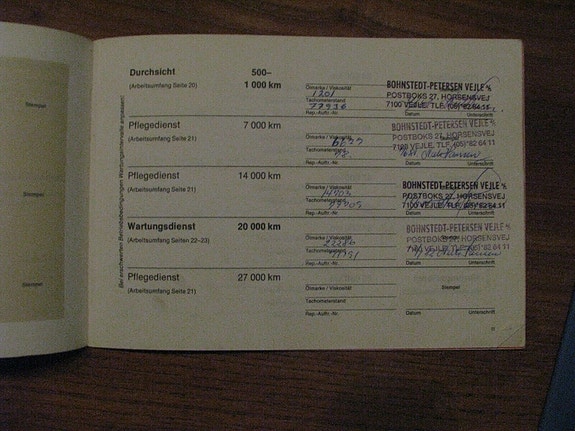 Stempel
Stempel
Stempel
Bei erschwerten Betriebsbedingungen Wartungsintervalle anpassen!
Durchsicht 500–
(Arbeitsumfang Seite 20) 1 000 km
Ölmarke / Viskosität
1201
Tachometerstand
Rep.-Auftr.-Nr.
BOHNSTEDT-PETERSEN VEJLE A/S
POSTBOKS 27, HORSENSVEJ
7100 VEJLE, TLF. (05)*82 64 11
Datum Unterschrift
Pflegedienst 7 000 km
(Arbeitsumfang Seite 21)
Ölmarke / Viskosität
Tachometerstand
Rep.-Auftr.-Nr.
BOHNSTEDT-PETERSEN VEJLE A/S
POSTBOKS 27, HORSENSVEJ
7100 VEJLE, TLF. (05)*82 64 11
Datum Unterschrift
Pflegedienst 14 000 km
(Arbeitsumfang Seite 21)
Ölmarke / Viskosität
Tachometerstand
Rep.-Auftr.-Nr.
BOHNSTEDT-PETERSEN VEJLE A/S
POSTBOKS 27, HORSENSVEJ
7100 VEJLE, TLF. (05)*82 64 11
Datum Unterschrift
Wartungsdienst 20 000 km
(Arbeitsumfang Seiten 22–23)
Ölmarke / Viskosität
22286
Tachometerstand
Rep.-Auftr.-Nr.
BOHNSTEDT-PETERSEN VEJLE A/S
POSTBOKS 27, HORSENSVEJ
7100 VEJLE, TLF. (05)*82 64 11
Datum Unterschrift
Pflegedienst 27 000 km
(Arbeitsumfang Seite 21)
Ölmarke / Viskosität
Tachometerstand
Rep.-Auftr.-Nr.
Stempel
Datum Unterschrift